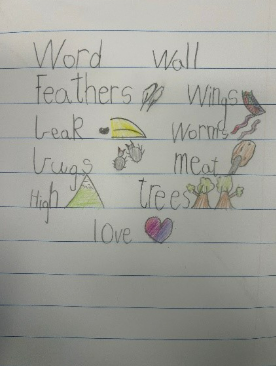 Word Wall
Feathers Wings
beak Worms
bugs meat
High trees
love